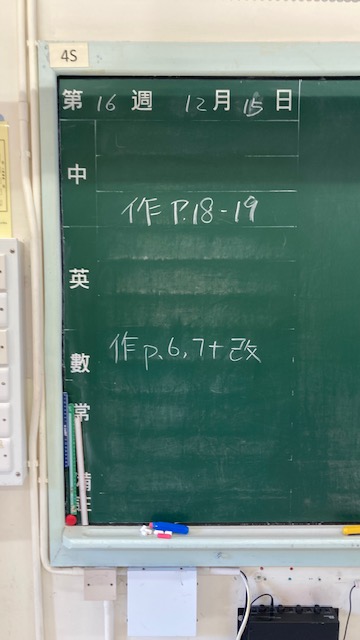 4S
第 16 週 12 月 15 日
中
作 P.18-19
英
作 p.6,7+改
數
常